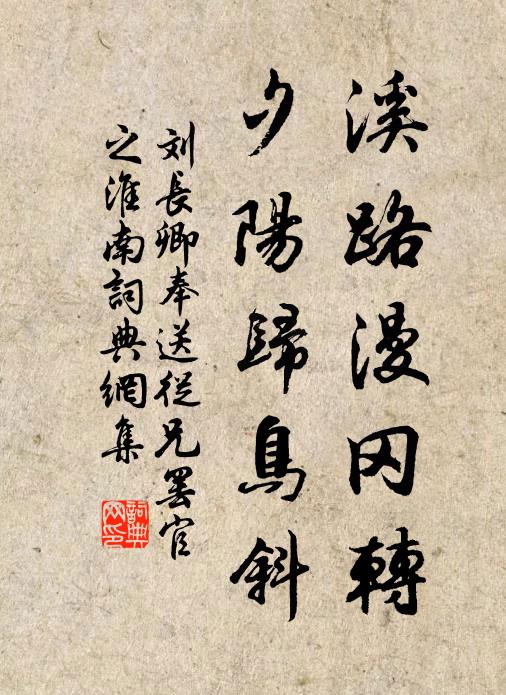 溪路漫冈轉
夕陽歸鳥斜
刘長卿奉送從兄罢官
之淮南詞典網集
詞典
网印